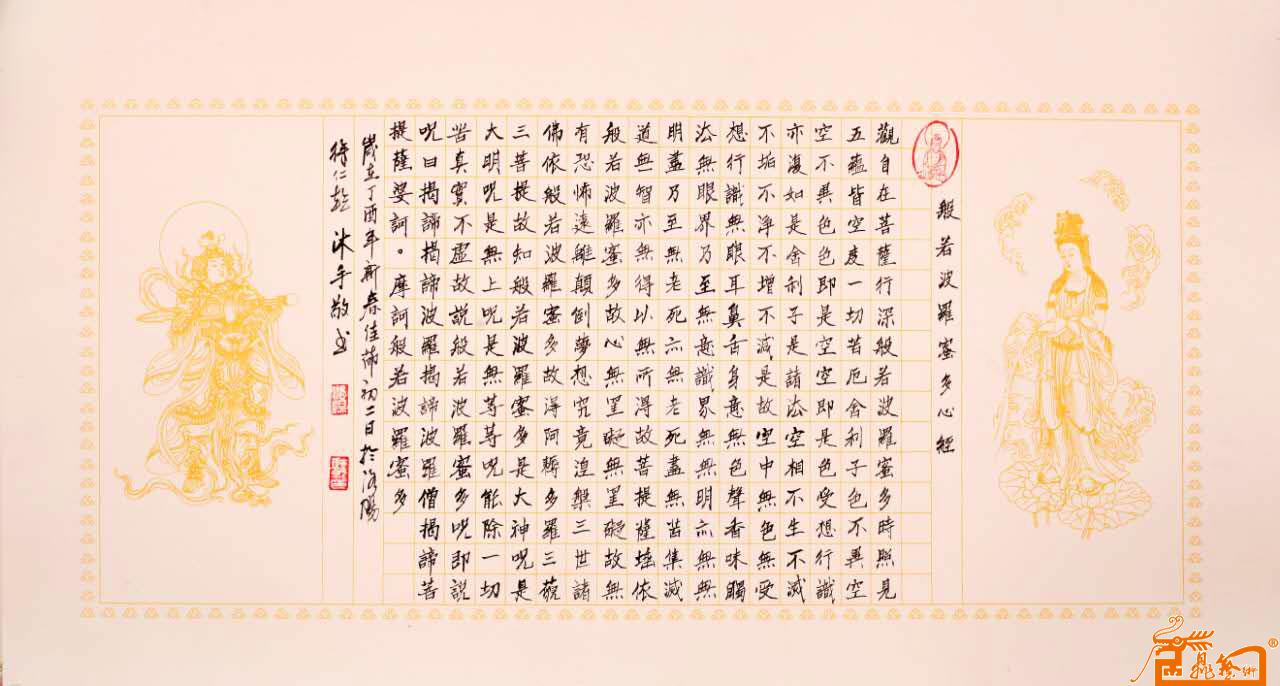 般若波羅蜜多心經
觀自在菩薩行深般若波羅蜜多時照見
五蘊皆空度一切苦厄舍利子色不異空
空不異色色即是空空即是色受想行識
亦復如是舍利子是諸法空相不生不滅
不垢不淨不增不減是故空中無色無受
想行識無眼耳鼻舌身意無色聲香味觸
法無眼界乃至無意識界無無明亦無無
明盡乃至無老死亦無老死盡無苦集滅
道无智亦無得以無所得故菩提薩埵依
般若波羅蜜多故心無罣礙無罣礙故無
有恐怖遠離顛倒夢想究竟涅槃三世諸
佛依般若波羅蜜多故得阿耨多羅三藐
三菩提故知般若波羅蜜多是大神呪是
大明呪是無上呪是無等等呪能除一切
苦真實不虛故說般若波羅蜜多呪即說
呪曰揭諦揭諦波羅揭諦波羅僧揭諦菩
提薩婆訶。摩訶般若波羅蜜多
歲在丁酉年新春佳節初二日於洛陽
仁 沐手敬书